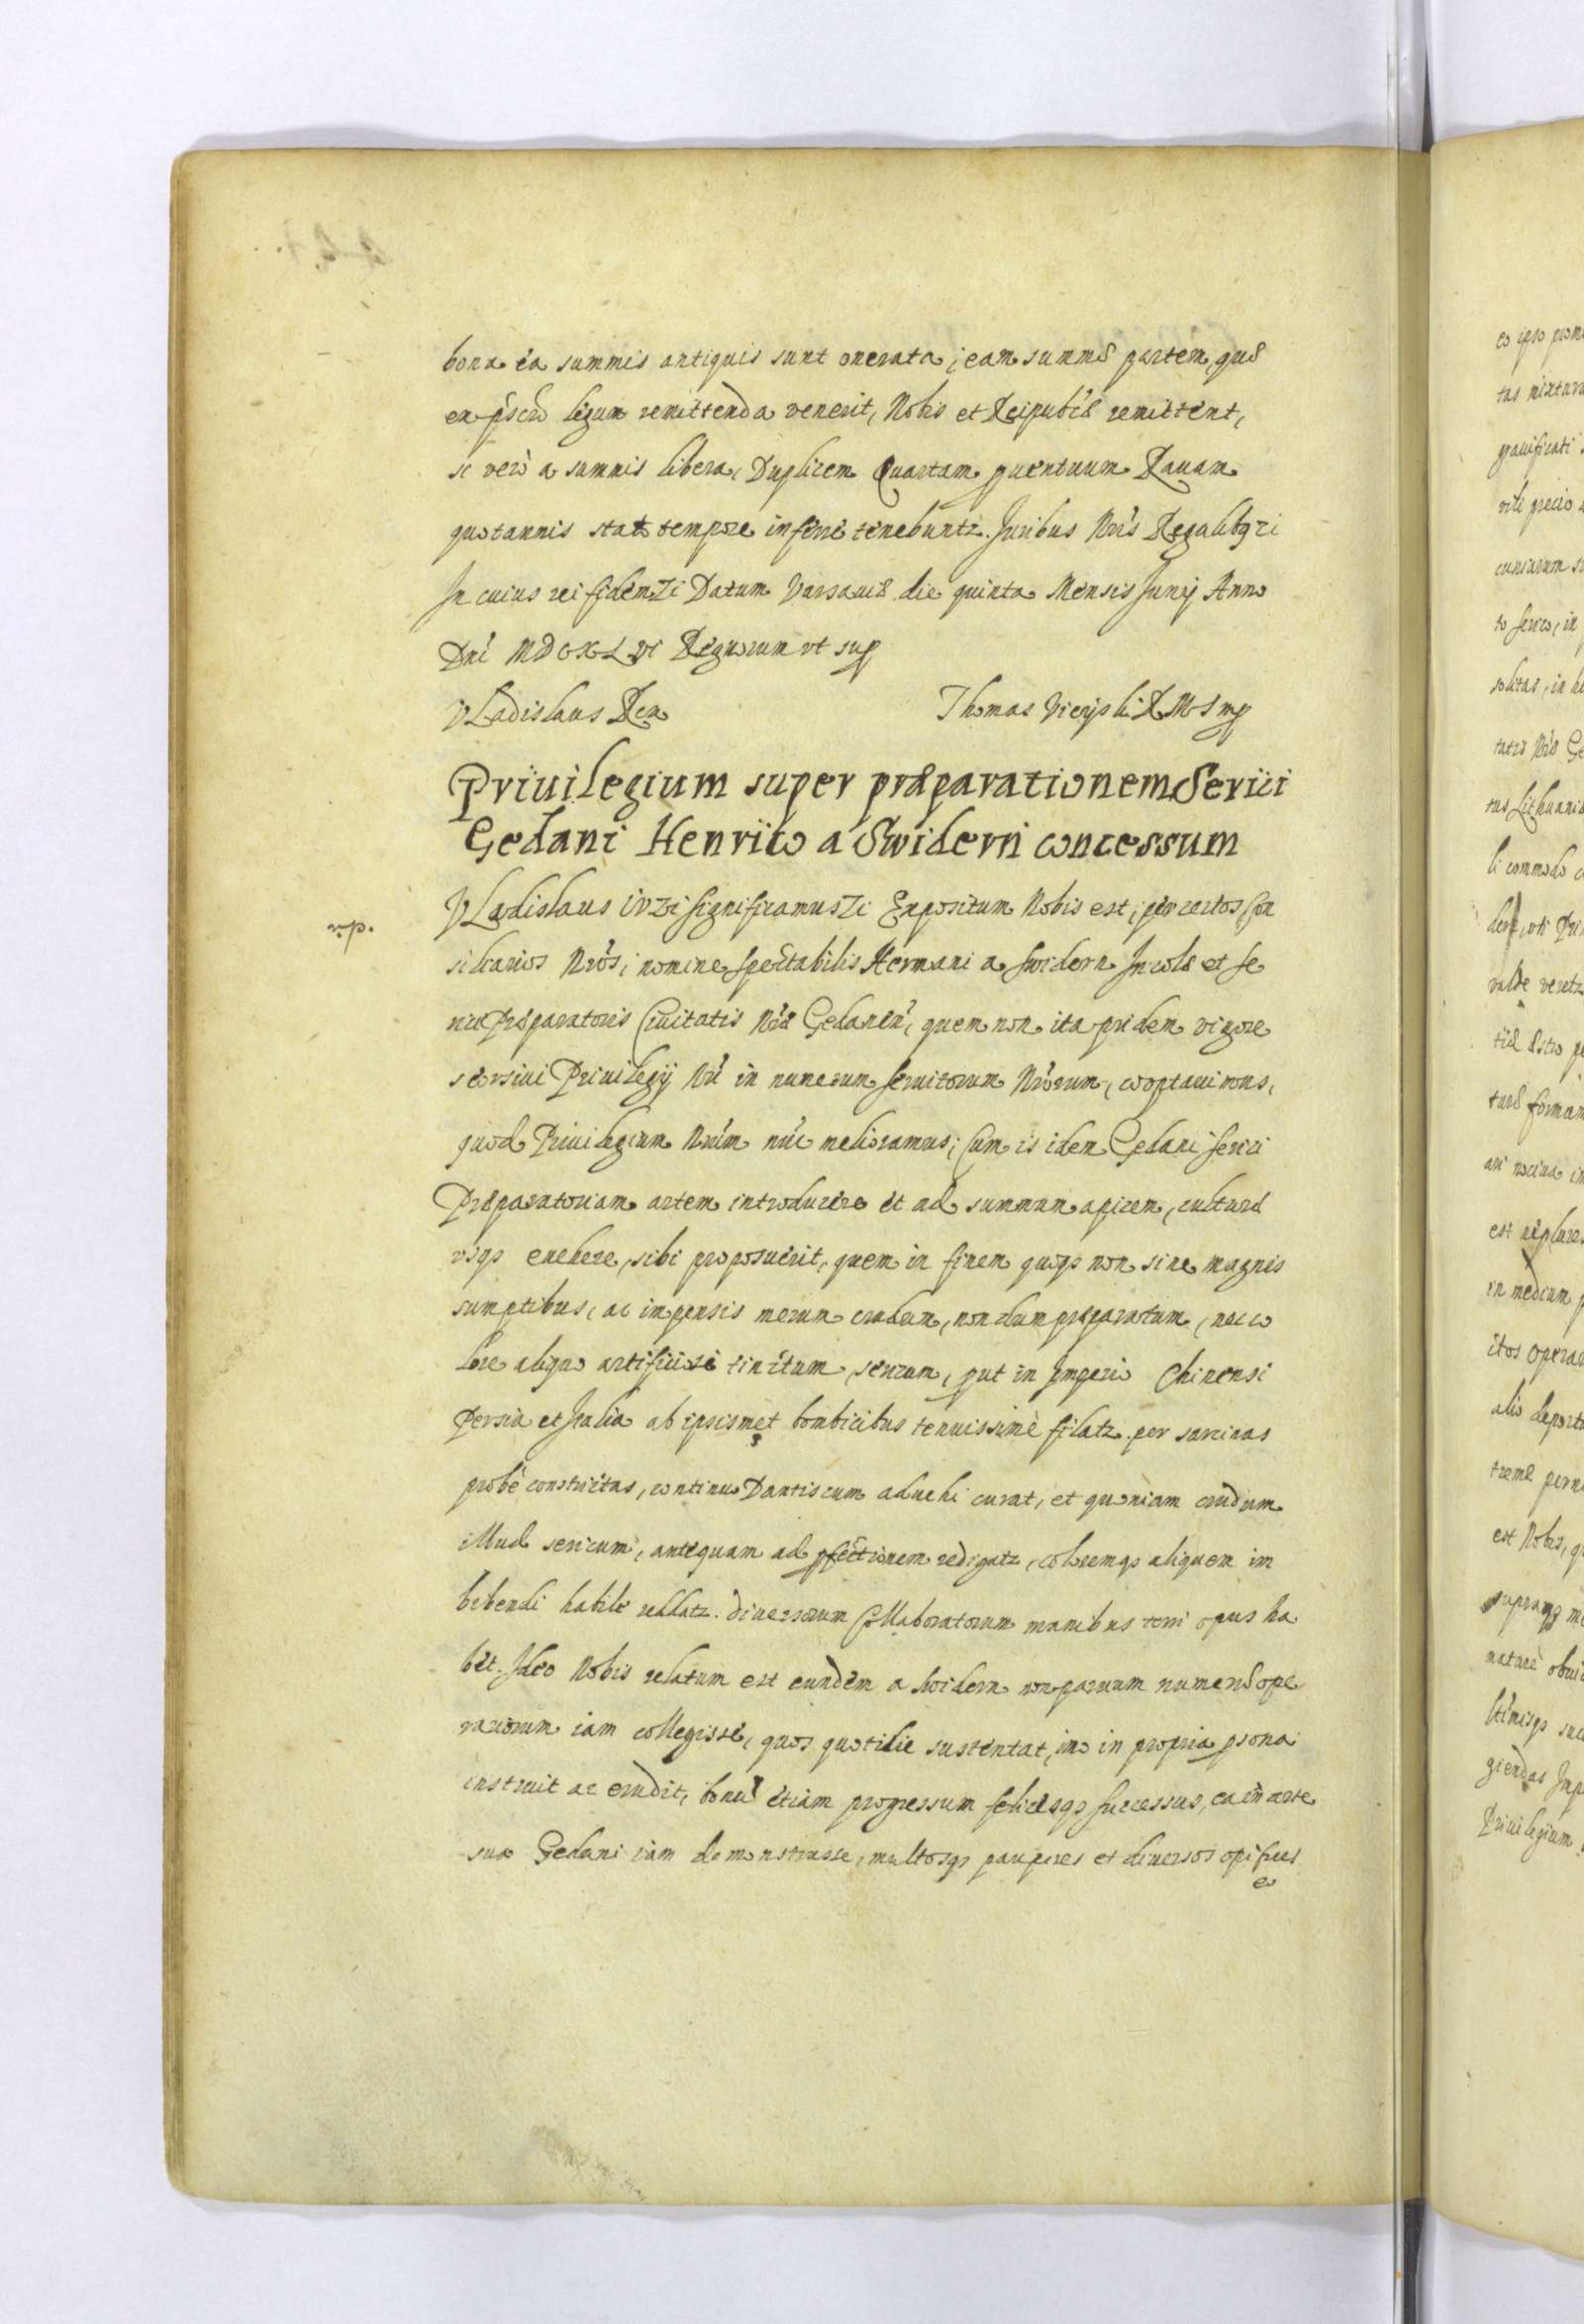 bona ea summis antiquis sunt onerata, eam summæ partem, quæ
ex pscro legum remittenda venerit, Nobis et Reipubcæ remittent,
si verò a summis libera, Duplicem Quartam puentuum Ravam
quotannis stato tempore inferre tenebuntr. Juribus Nris Regalibq zi
In cuius rei fidem zi Datum Varsauiæ die quinta Mensis Junij Anno
Dni MDCXLVI Regnorum vt sup
Vladislaus Rex
Thomas Vieyski R M S mp
Priuilegium super præparationem Serici
Gedani Henrico a Swidern concessum
Vladislaus ivzi significamus zi Expositum Nobis est, per certos Con
siliarios Nros, nomine spectabilis Hermani a Swidern Incolæ et Se
rici Præparatoris Ciuitatis Nræ Gedanen, quem non ita pridem vigore
seorsiui Priuilegij Nri in numerum seruitorum Nrorum, cooptauimus,
quod Priuilegium Nrum nuc melioramus; Cum is idem Gedani serici
Præparatoriam artem introducere et ad summum apicem, culturæ
vsqz euehere, sibi proposuerit, quem in finem quoqz non sine magnis
sumptibus, ac impensis merum crudum, nondum præparatum, nec co
lore aliquo artificiose tinctum, sericum, put in Imperio Chinensi
Persia et Italia ab ipsismet bombicibus tenuissimè filatr. per sarcinas
probè constrictas, continuo Dantiscum aduehi curat, et quoniam crudum
illud sericum, antequam ad pfectionem redigatr, coloremqz aliquem im
bibendi habile reddatr. diuersorum Collaboratorum manibus terri opus ha
bet. Ideo Nobis relatum est eundem a Swidern non paruum numerum ope
rariorum iam collegisse, quos quotidie sustentat, imo in propria psona
instruit ac erudit, bonu etiam progressum felicesqz successus, ea in arte
sua Gedani iam demonstrasse, multosqz pauperes et diuersos opifices
eo